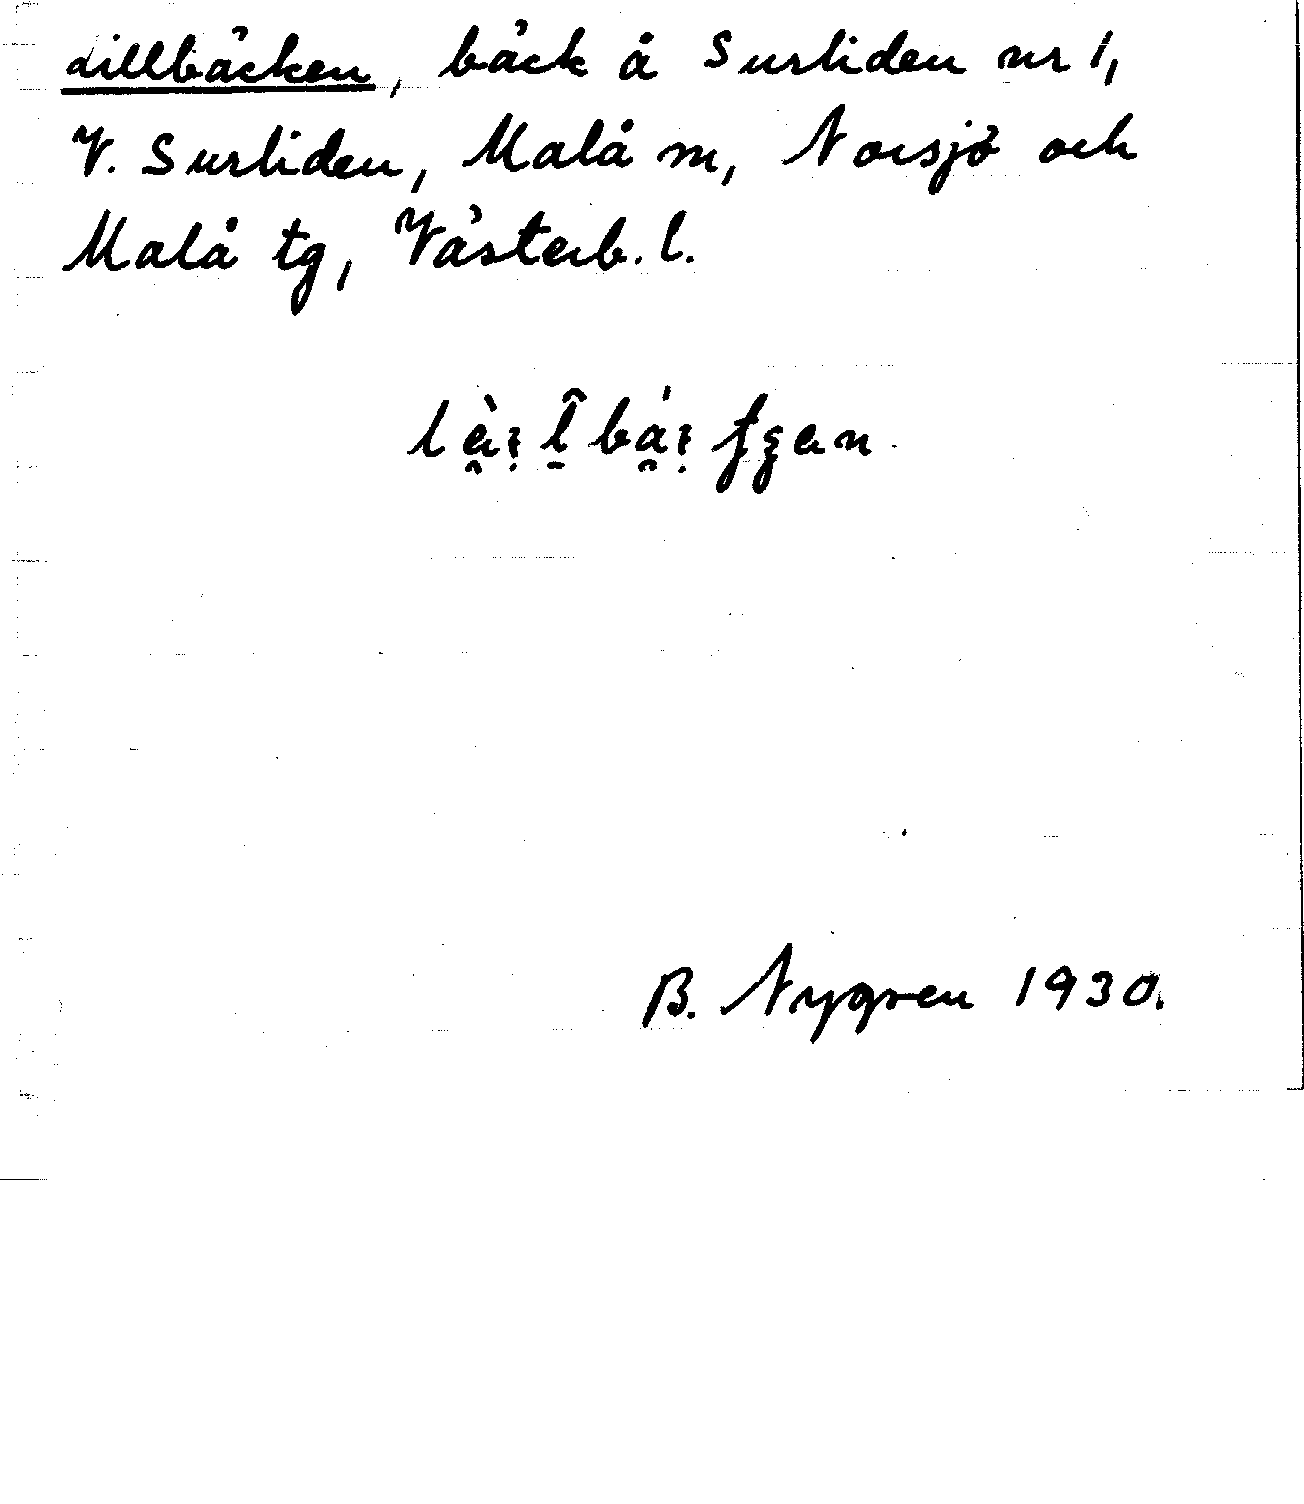 Lillbäcken, bäck å Surliden nr 1,
V. Surliden, Malå sn, Norsjö och
Malå tg, Västerb. l.
B. Nygren 1930.